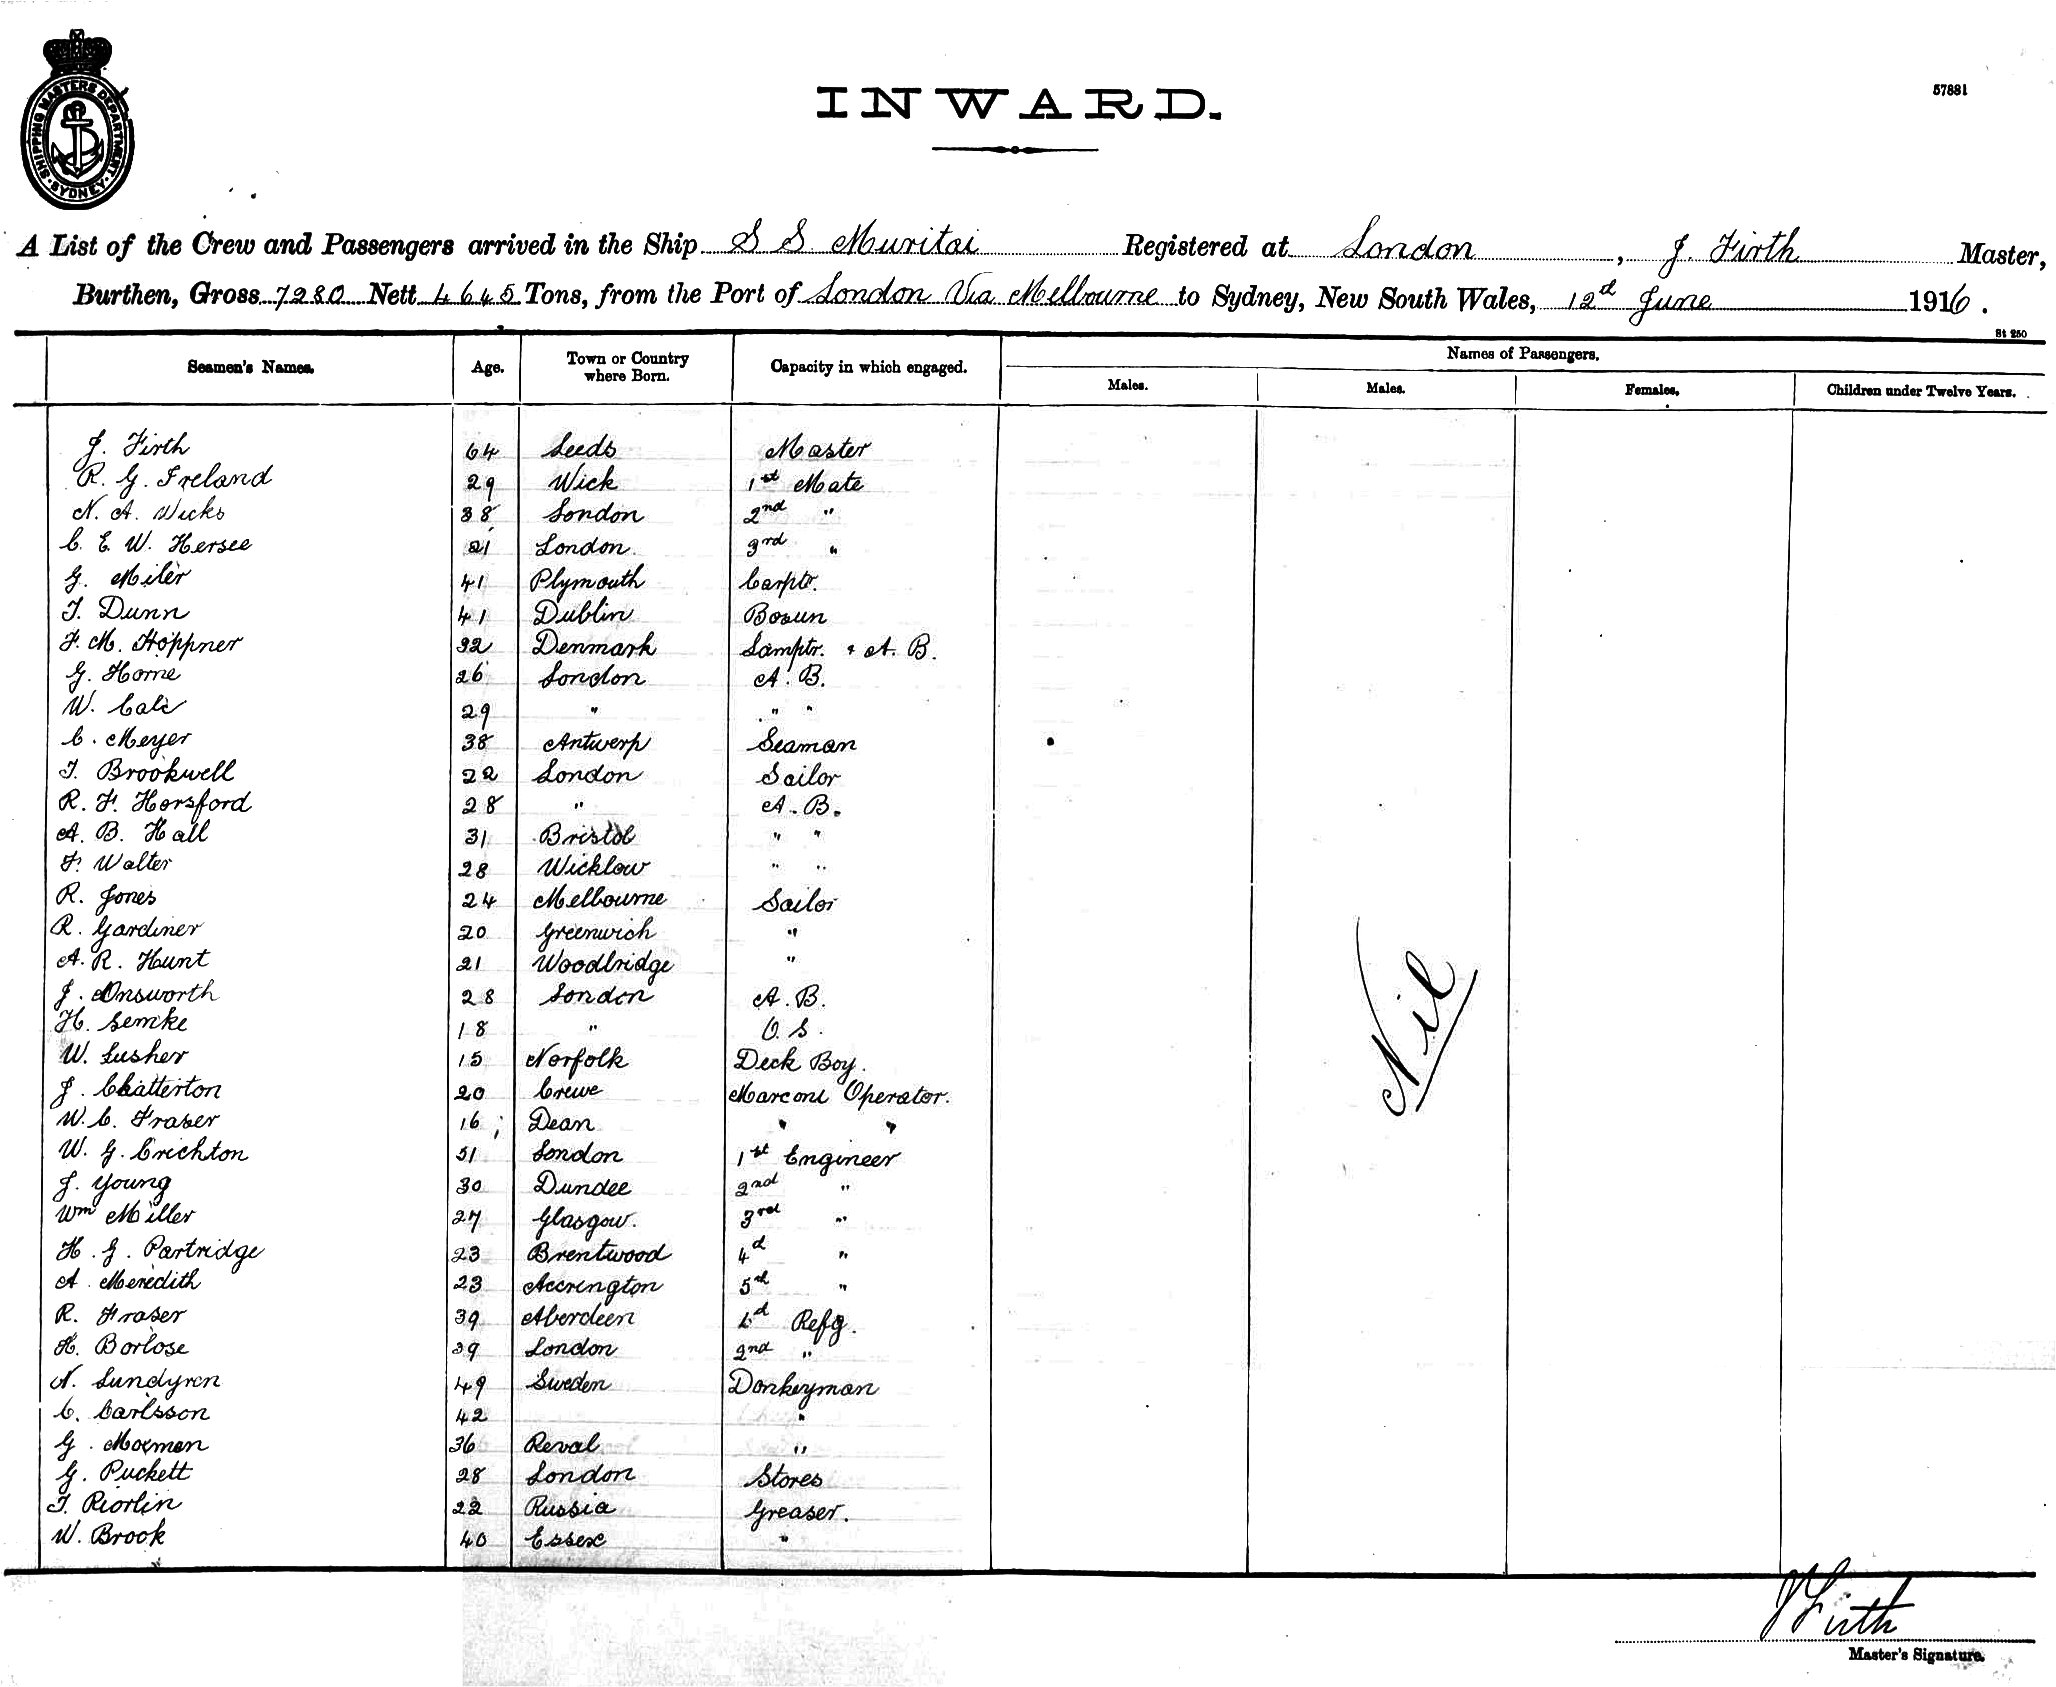 SHIPPING MASTERS DEPARTMENT · SYDNEY ·
INWARD.
57881
A List of the Crew and Passengers arrived in the Ship S S Muritai Registered at London, J. Firth Master,
Burthen, Gross 7280 Nett 4645 Tons, from the Port of London Via Melbourne to Sydney, New South Wales, 12d June 1916.
St 250
Seamen's Names. Age. Town or Country where Born. Capacity in which engaged. Names of Passengers.
Males. Males. Females. Children under Twelve Years.
J. Firth 64 Leeds Master
R. G. Ireland 29 Wick 1st Mate
N. A. Wicks 38 London 2nd "
C. E. W. Hersee 21 London 3rd "
G. Miler 41 Plymouth Carptr.
T. Dunn 41 Dublin Bosun
F. M. Höppner 32 Denmark Lamptr. & A. B.
G. Horne 26 London A. B.
W. Cale 29 " " "
C. Meyer 38 Antwerp Seaman
T. Brookwell 22 London Sailor
R. F. Horsford 28 " A. B.
A. B. Hall 31 Bristol " "
F. Walter 28 Wicklow " "
R. Jones 24 Melbourne Sailor
R. Gardiner 20 Greenwich "
A. R. Hunt 21 Woodbridge "
J. 28 London A. B.
H. Semke 18 " O. S.
W. Lusher 15 Norfolk Deck Boy.
J. Chatterton 20 Crewe Marconi Operator.
W. C. Fraser 16 Dean " "
W. G. Crichton 51 London 1st Engineer
J. Young 30 Dundee 2nd "
Wm Miller 27 Glasgow. 3rd "
H. G. Partridge 23 Brentwood 4d "
A. Meredith 23 Accrington 5th "
R. Fraser 39 Aberdeen Refg.
H. Borlose 39 London 2nd "
N. Lundyren 49 Sweden Donkeyman
C. Carlsson 42 "
G. 36 Reval "
G. Puckett 28 London Stores
T. Riorlin 22 Russia Greaser.
W. Brook 40 Essex "
Nil
J Firth
Master's Signature.